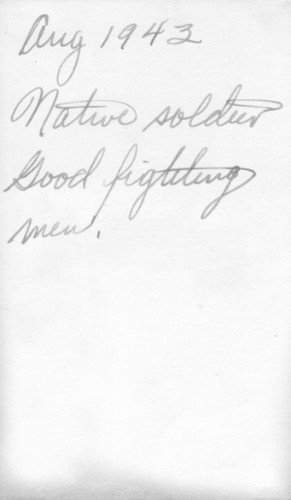 Aug 1943
Native soldier
Good fighting
men.